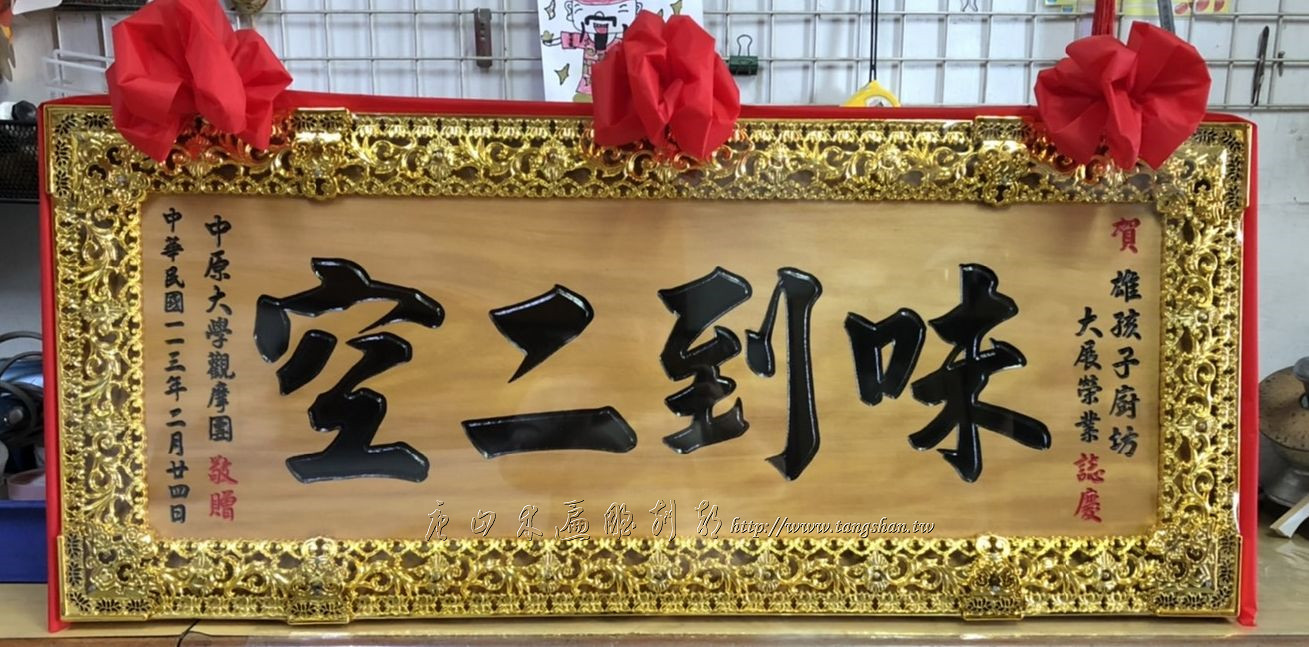 賀 雄孩子廚坊
大展榮業 誌慶
味到二空
中原大學觀摩團 敬贈
中華民國一一三年二月廿四日
唐山木匾雕刻部 http://www.tangshan.tw